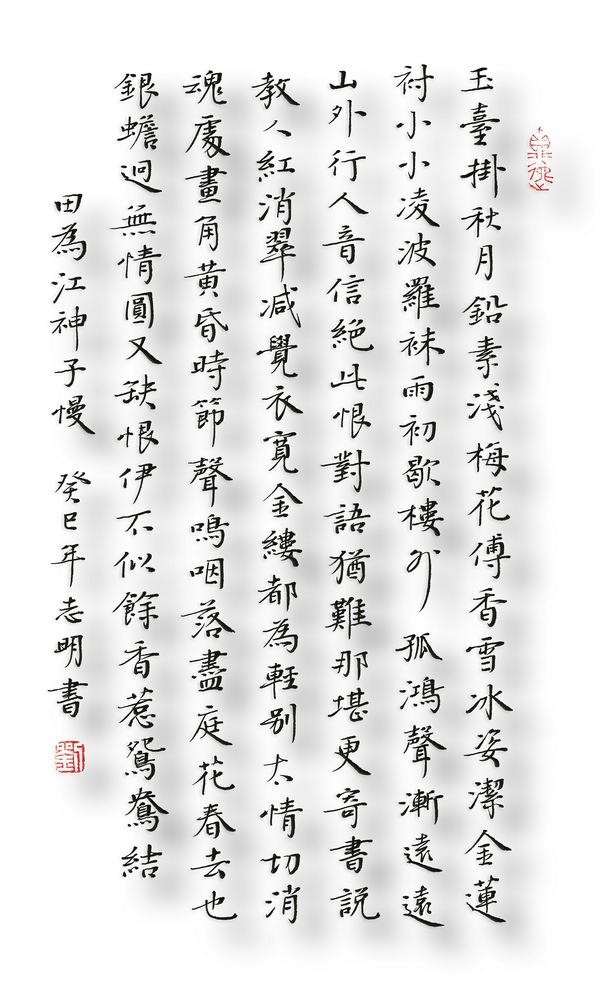 玉臺掛秋月鉛素淺梅花傅香雪冰姿潔金蓮
衬小小凌波羅袜雨初歇樓外孤鴻聲漸遠遠
山外行人音信絕此恨對語猶難那堪更寄書説
教人紅消翠减覺衣寬金縷都為輕别太情切消
魂處畫角黄昏時節聲嗚咽落盡庭花春去也
銀蟾迥無情圓又缺恨伊不似餘香惹鴛鴦結
田為江神子慢 癸巳年志明書
劉